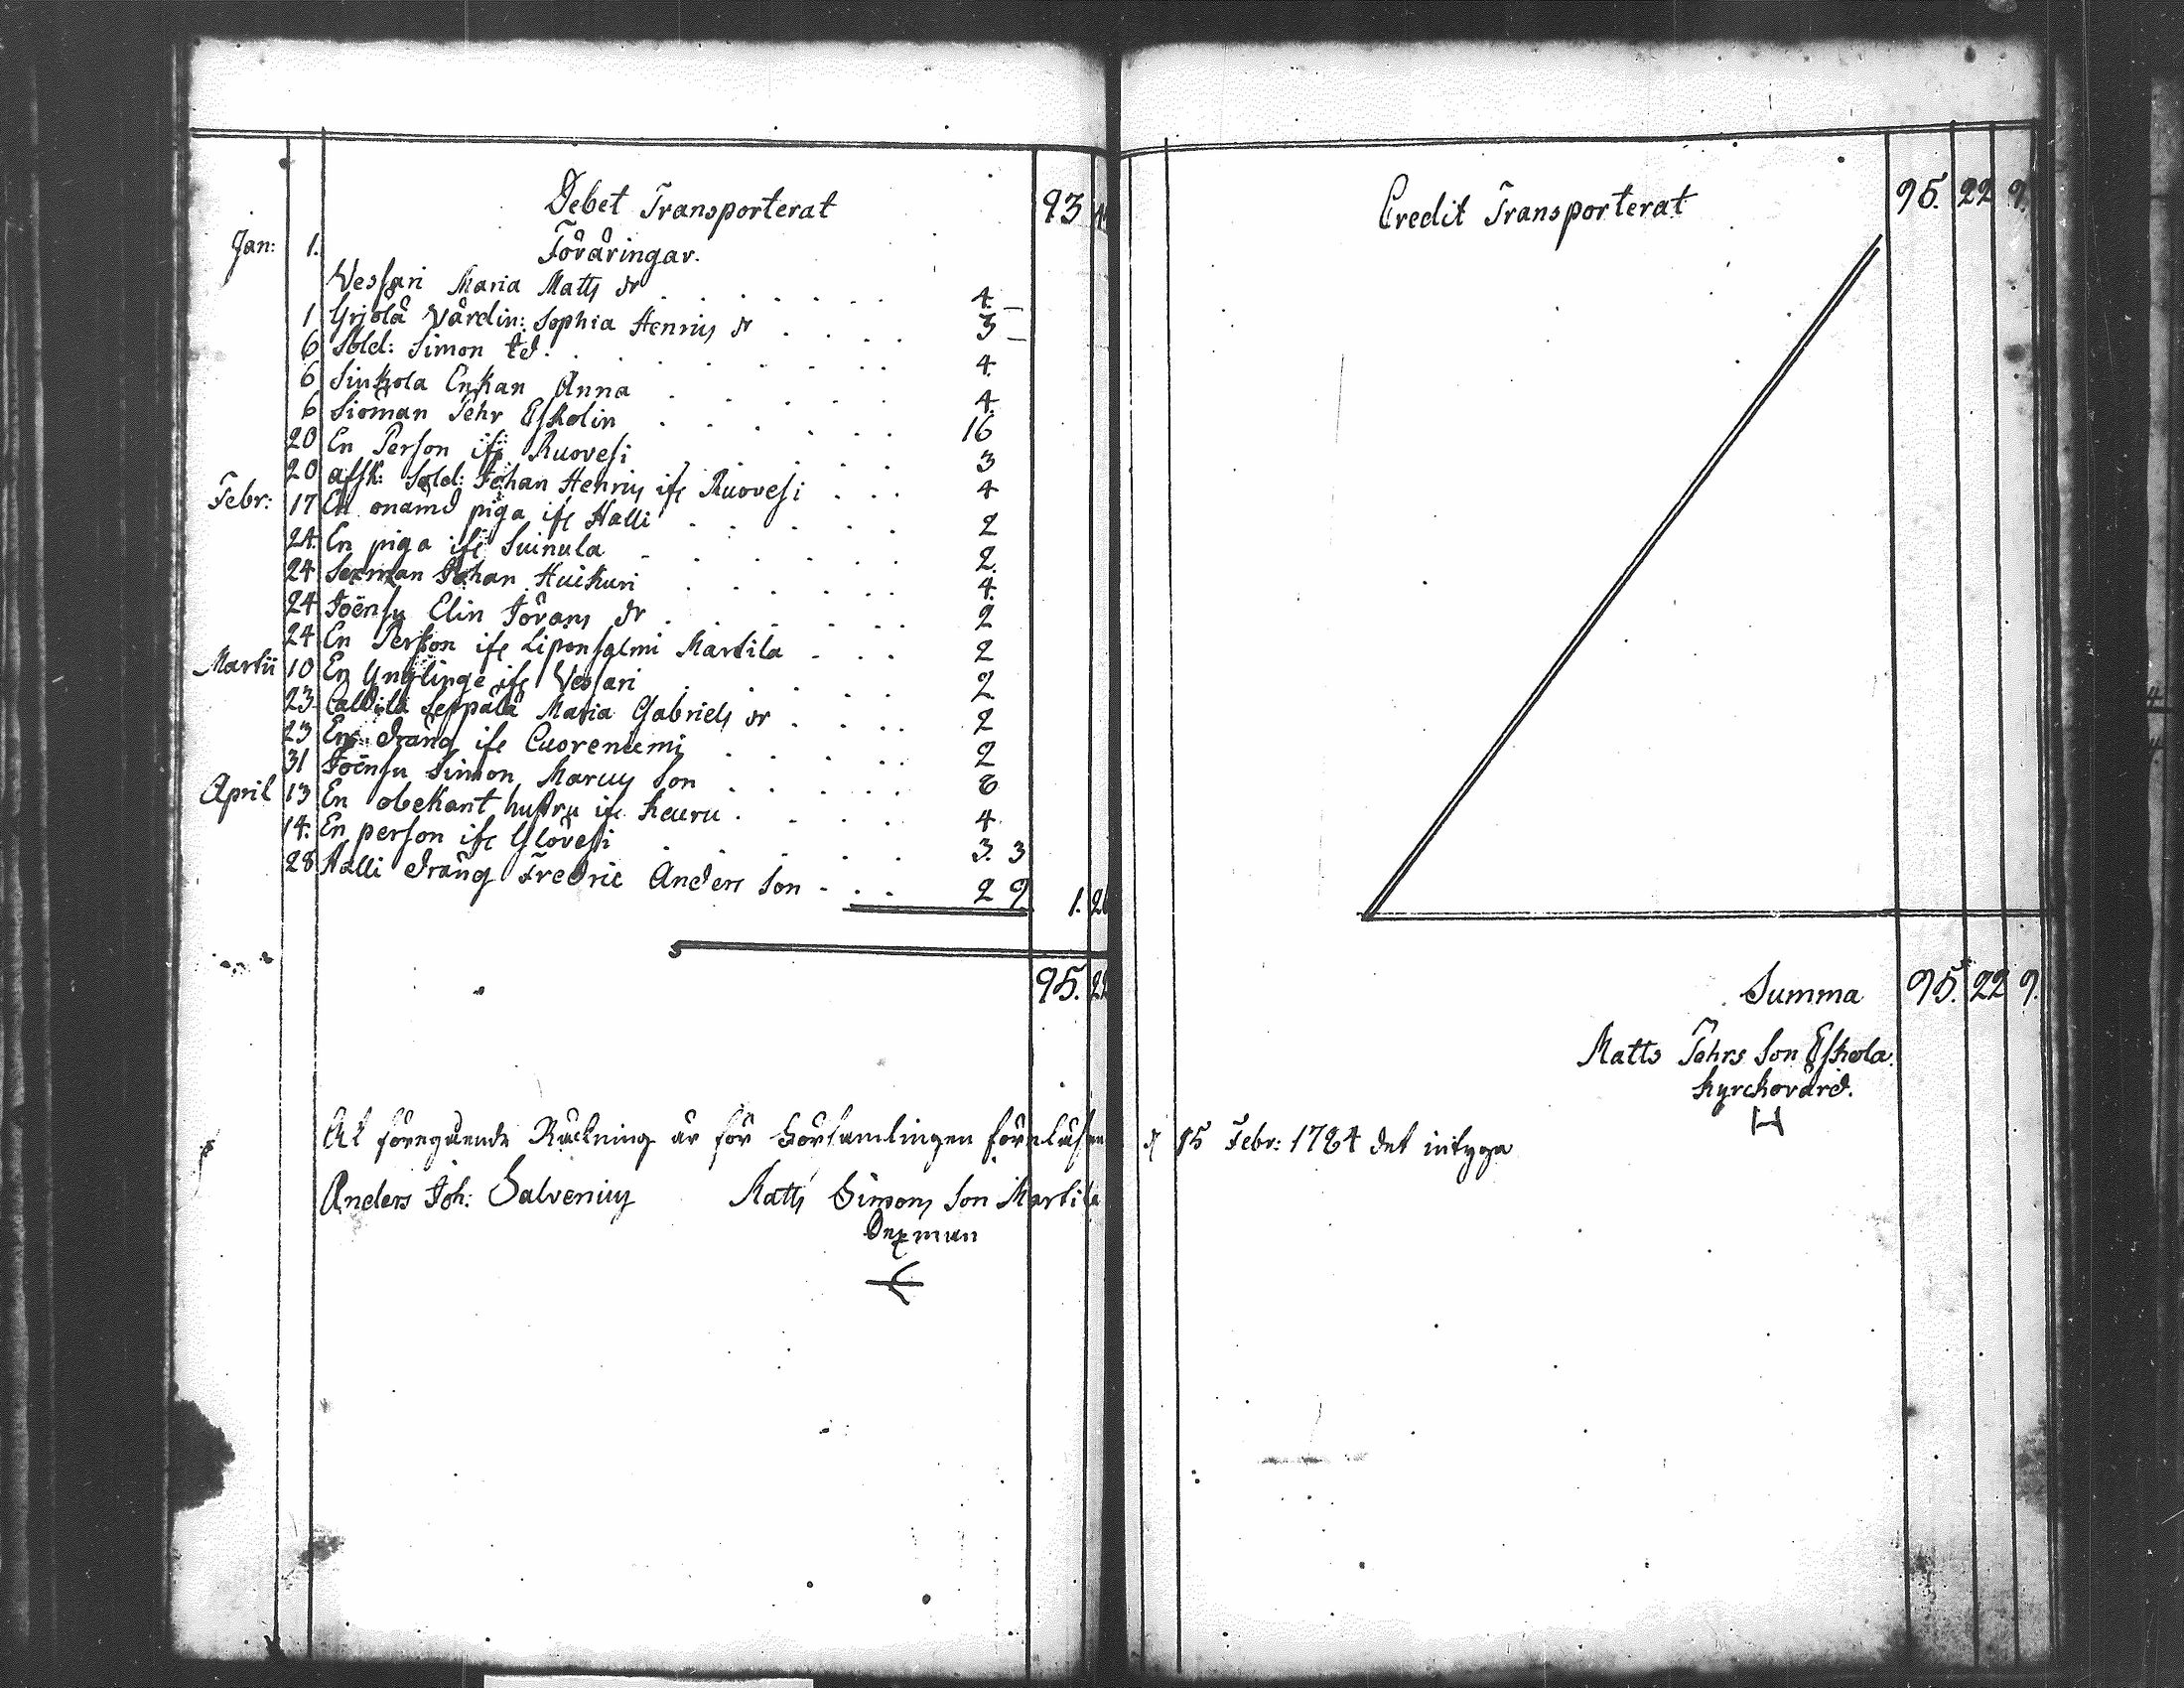 Debet Transporterat 93
Jan: 1. Föräringar.
Vessari Maria Matts dr . . . . . . 4. –
1 Yrjölä Värdin: Sophia Henrics dr . . . . 3 –
6 Sold: Simon td. . . . . . . 4.
6 Sinkola Enkan Anna . . . . . 4.
6 Sioman Pehr Eskolin . . . . . 16
20 En Person ifr Ruovesi . . . . . 3
20 afsk: Sold: Johan Henrics ifr Ruovesi . . . 4
Febr: 17 En onamd piga ifr Halli . . . . . 2
24. En piga ifr Suinula . . . . . 2.
24 Sexman Johan Huikuri . . . . . 4.
24 Joënsu Elin Jörans dr . . . . . . 2
24 En Person ifr Liponsalmi Martila . . . 2
Martii 10 En Ynglinge ifr Vessari . . . . . 2.
23. Caldila Seppälä Maria Gabriels dr . . . . 2
23 En dräng ifr Cuoreniemi . . . . . 2
31 Joënsu Simon Marcus Son . . . . . 8
April 13 En obekant hustru ifr Keuru . . . . 4
14. En person ifr Ylövesi . . . . . 3. 3
28 Halli dräng Fredric Anders Son . . . 2 9 1.
95.
At föregående Räckning är för Församlingen
Anders Joh: Salvenius Matts Simons Son Martila
Sexman
Credit Transporterat 95. 22 9.
Summa 95. 22 9.
Matts Pehrs Son Eskola.
Kyrckovärd.
d 15 Febr: 1784 det intyga